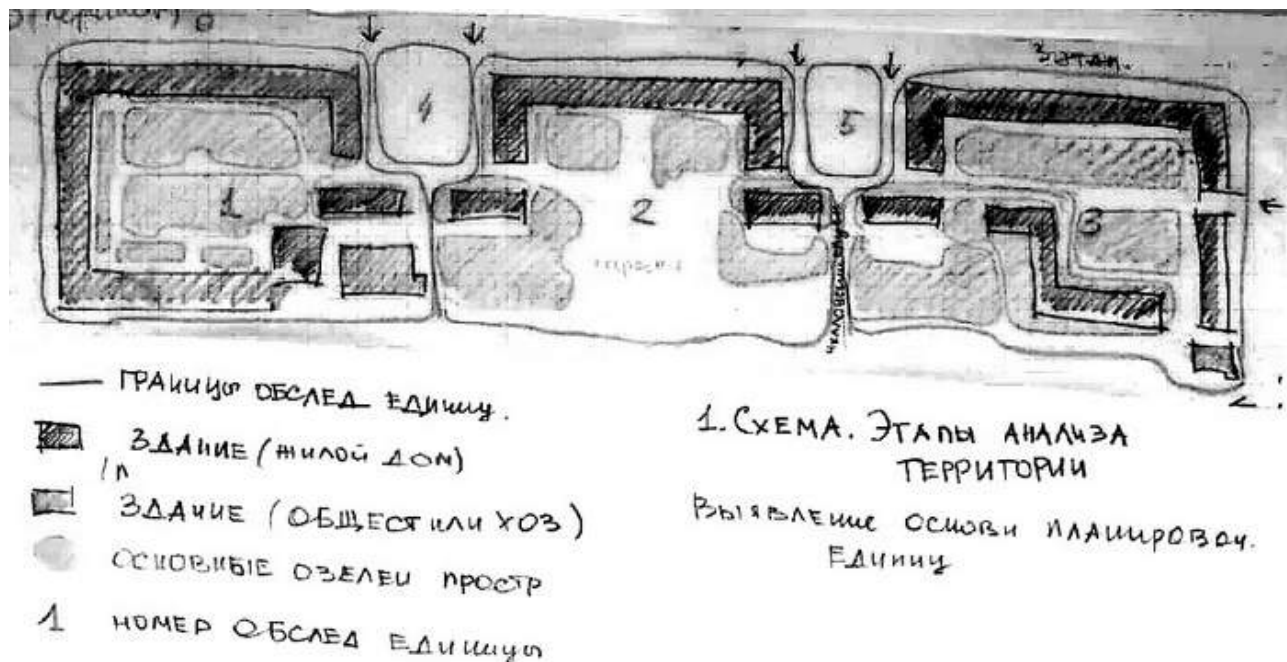 4
5
3 этап.
1
2
3
— ГРАНИЦЫ ОБСЛЕД ЕДИНИЦ.
ЗДАНИЕ (ЖИЛОЙ ДОМ)
ЗДАНИЕ (ОБЩЕСТ ИЛИ ХОЗ)
ОСНОВНЫЕ ОЗЕЛЕН ПРОСТР
1 НОМЕР ОБСЛЕД ЕДИНИЦЫ
1. СХЕМА. ЭТАПЫ АНАЛИЗА
ТЕРРИТОРИИ
ВЫЯВЛЕНИЕ ОСНОВН ПЛАНИРОВОЧ.
ЕДИНИЦ